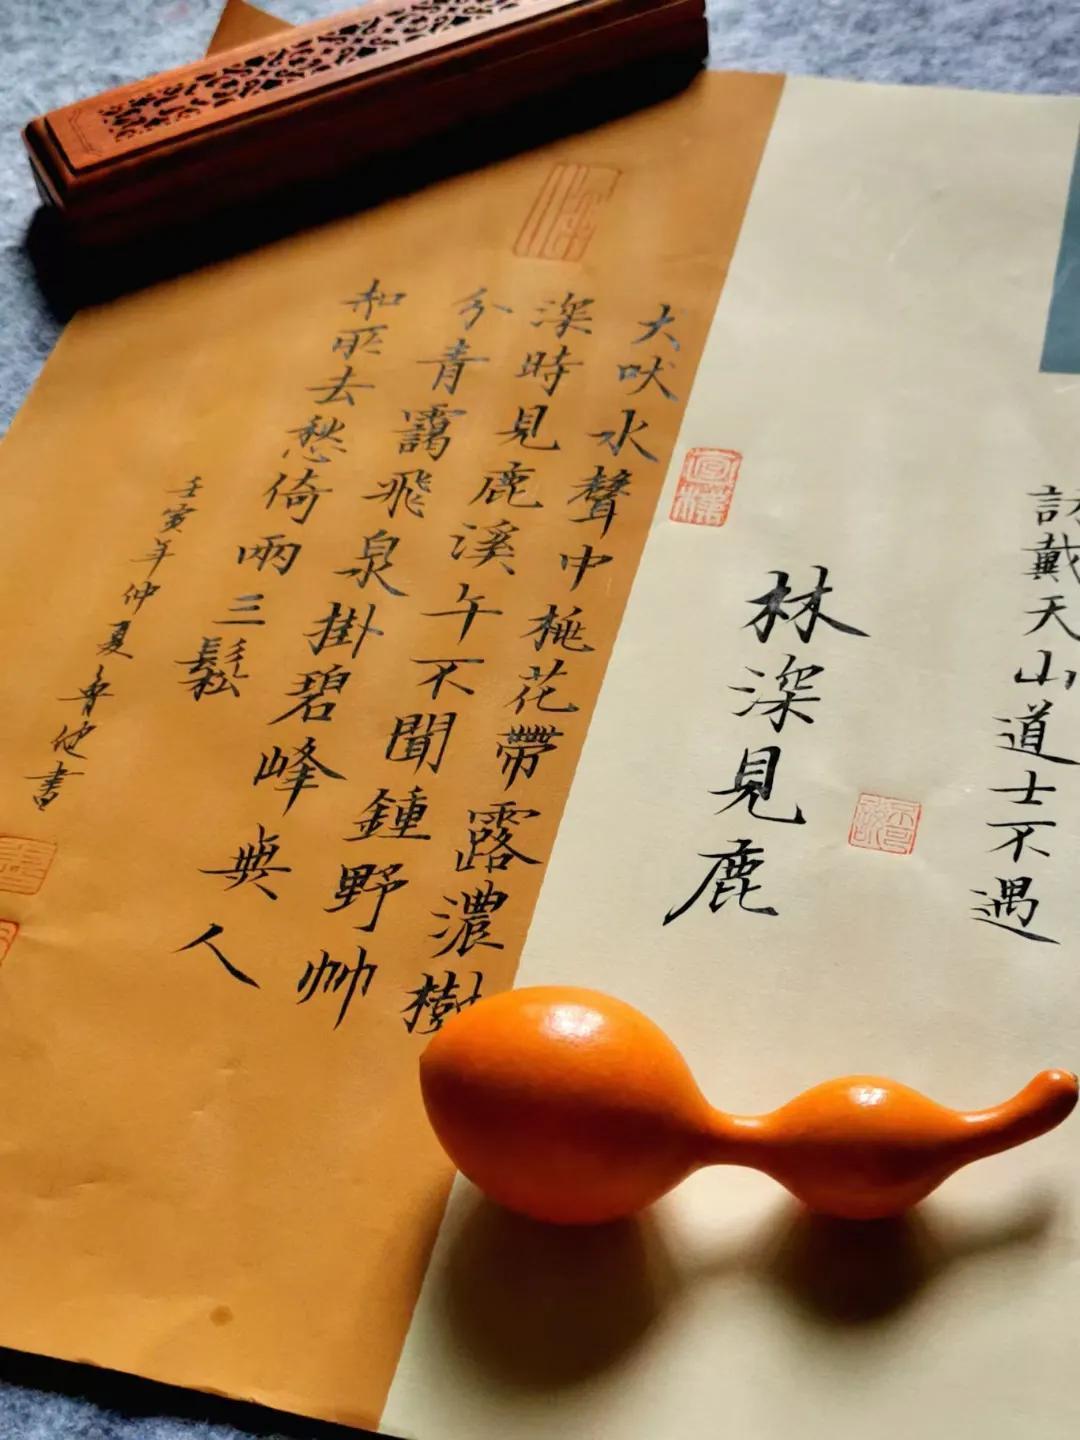 訪戴天山道士不遇
林深見鹿
犬吠水聲中桃花帶露濃樹
深時見鹿溪午不聞鍾野竹
分青靄飛泉掛碧峰無人
知所去愁倚兩三鬆
壬寅年仲夏魯書